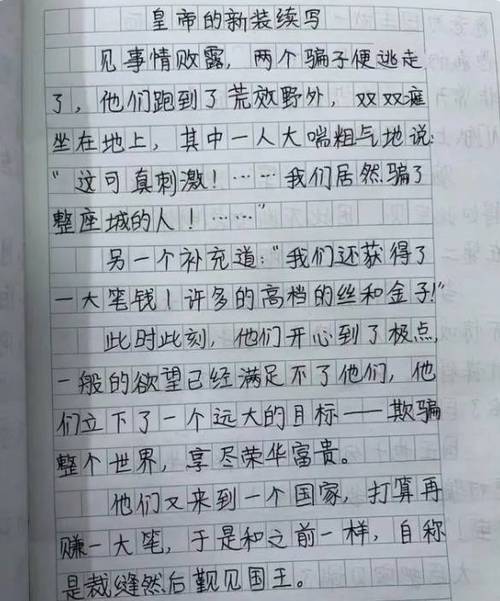 皇帝的新装续写
见事情败露，两个骗子便逃走
了，他们跑到了荒效野外，双双瘫
坐在地上，其中一人大喘粗气地说：
“这可真刺激！……我们居然骗了
整座城的人！……”
另一个补充道：“我们还获得了
一大笔钱！许多的高档的丝和金子！”
此时此刻，他们开心到了极点，
一般的欲望已经满足不了他们，他
们立下了一个远大的目标——欺骗
整个世界，享尽荣华富贵。
他们又来到一个国家，打算再
赚一大笔，于是和之前一样，自称
是裁缝然后觐见国王。